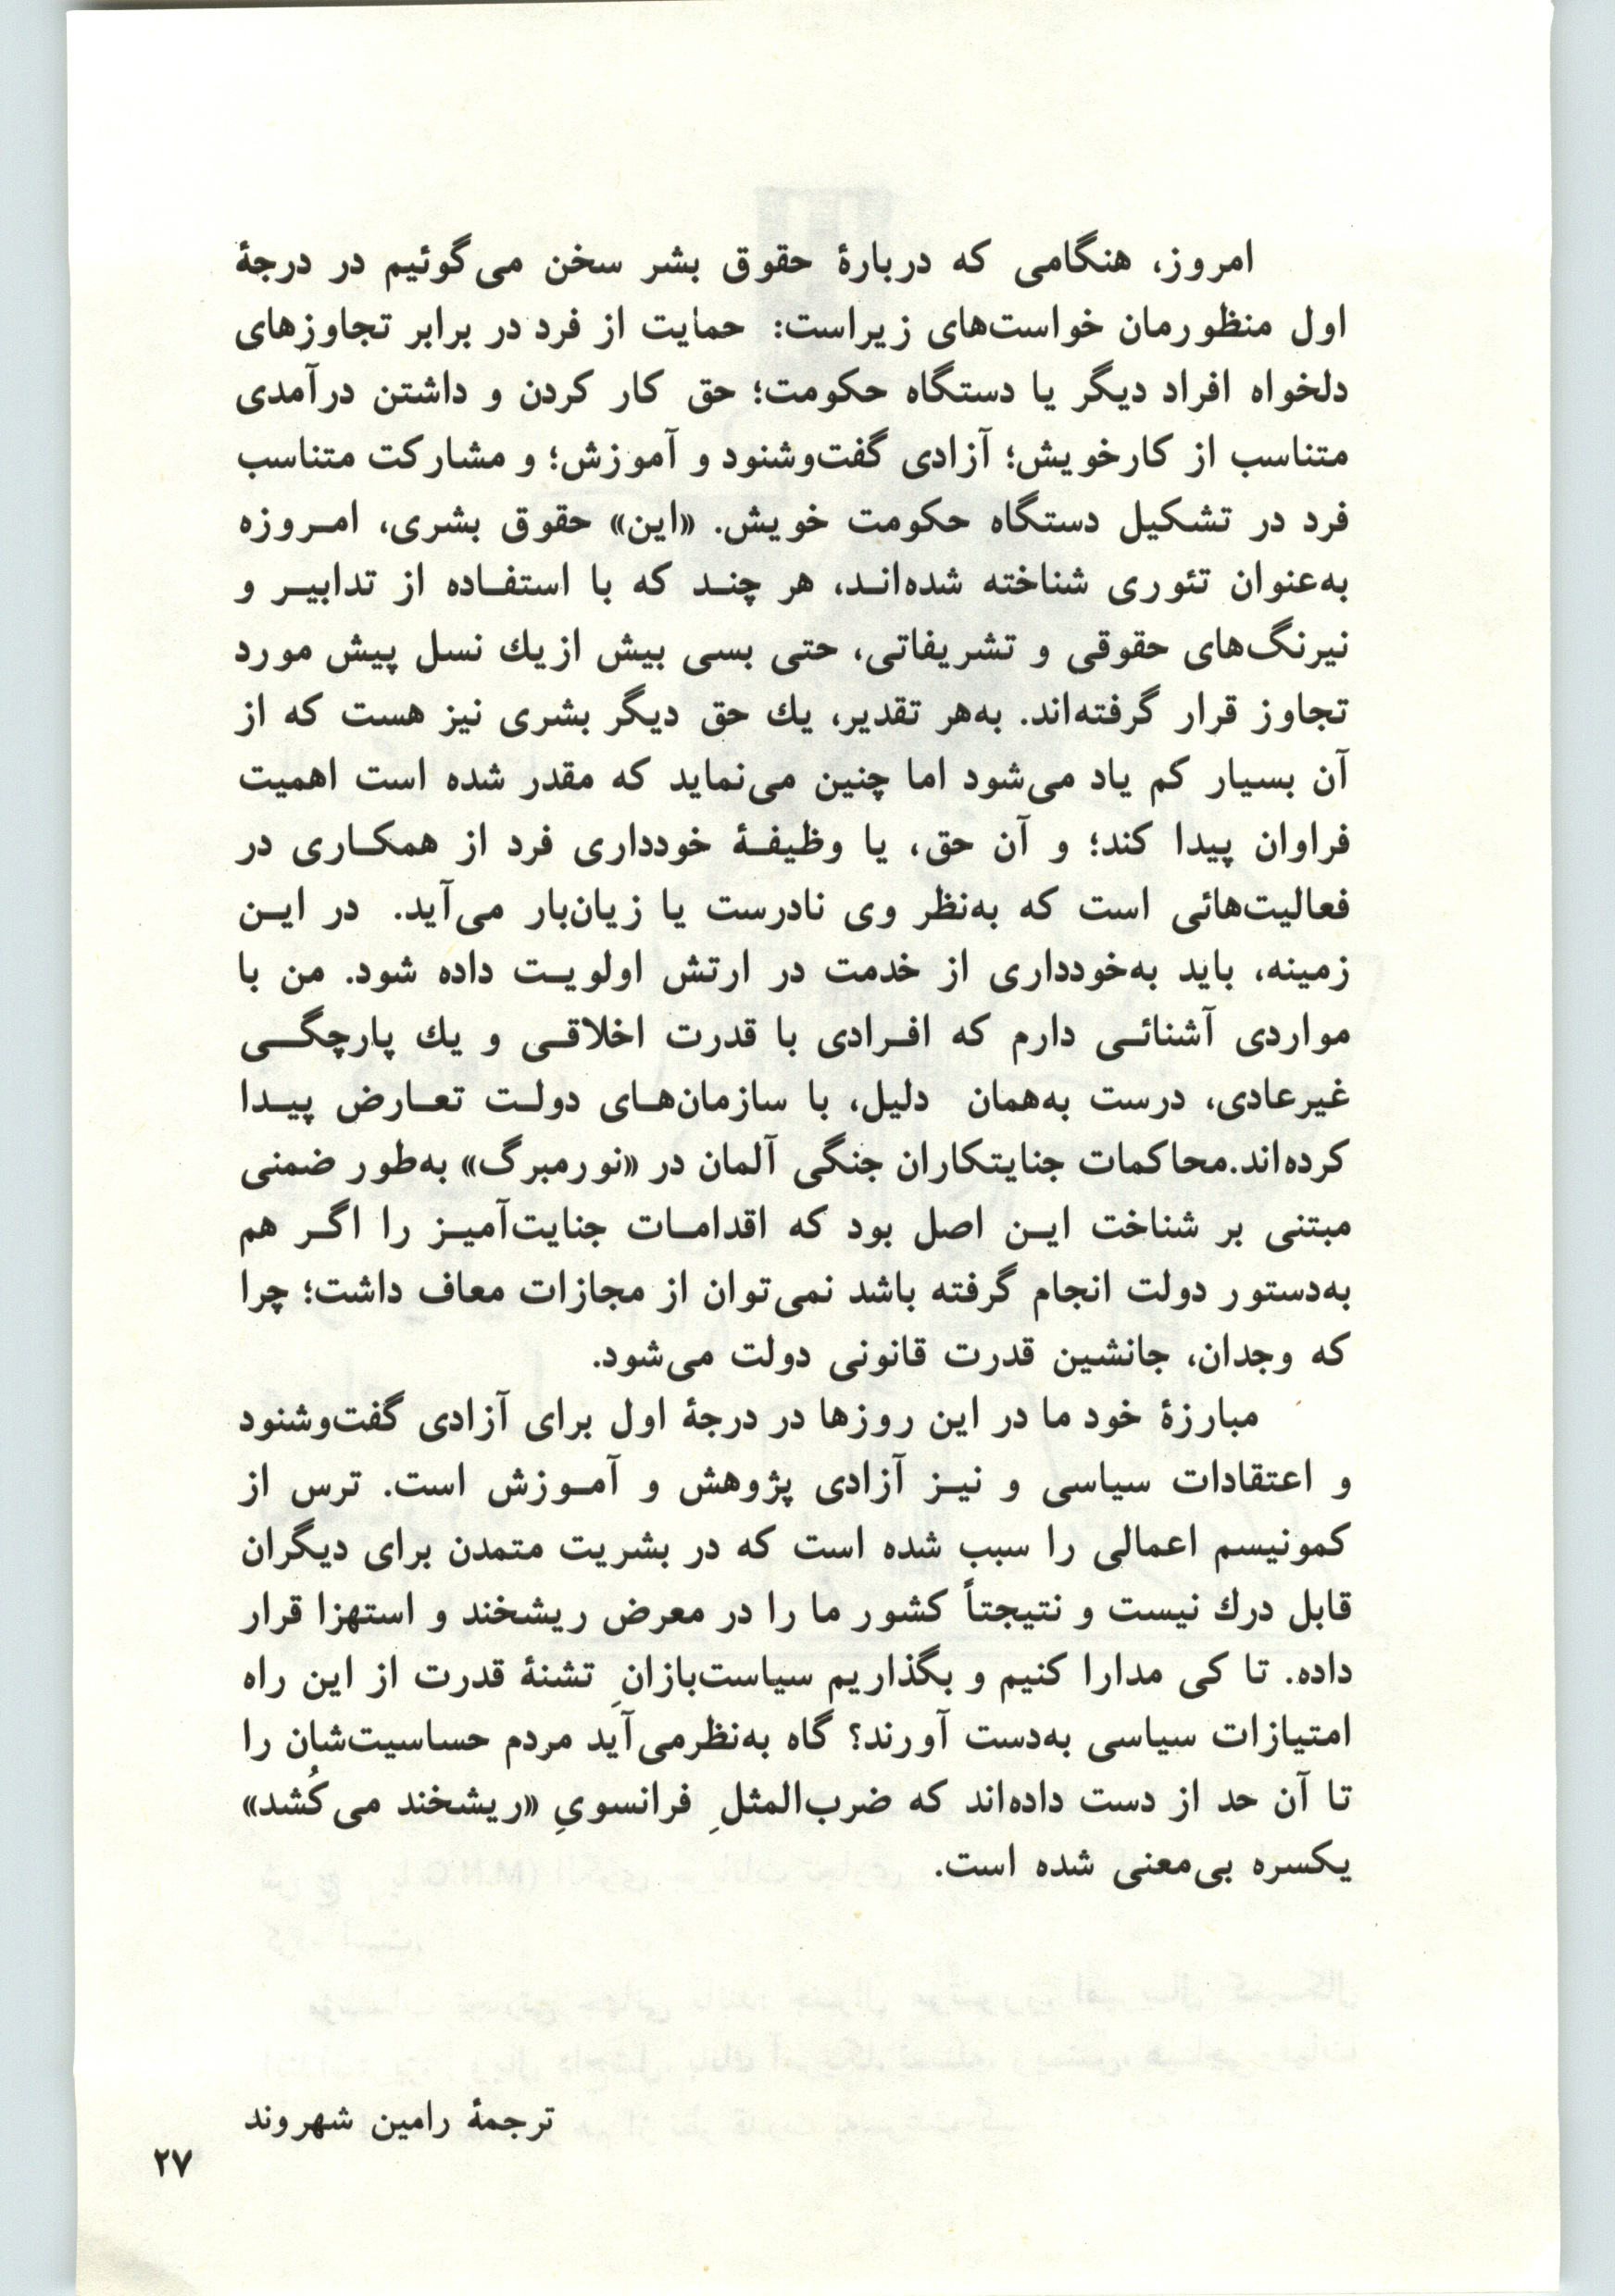 امروز، هنگامی که دربارهٔ حقوق بشر سخن می‌گوئیم در درجهٔ
اول منظورمان خواست‌های زیراست: حمایت از فرد در برابر تجاوزهای
دلخواه افراد دیگر یا دستگاه حکومت؛ حق کار کردن و داشتن درآمدی
متناسب از کارخویش؛ آزادی گفت‌وشنود و آموزش؛ و مشارکت متناسب
فرد در تشکیل دستگاه حکومت خویش. «این» حقوق بشری، امـروزه
به‌عنوان تئوری شناخته شده‌انـد، هر چنـد که با استفـاده از تدابیـر و
نیرنگ‌های حقوقی و تشریفاتی، حتی بسی بیش ازیك نسل پیش مورد
تجاوز قرار گرفته‌اند. به‌هر تقدیر، یك حق دیگر بشری نیز هست که از
آن بسیار کم یاد می‌شود اما چنین می‌نماید که مقدر شده است اهمیت
فراوان پیدا کند؛ و آن حق، یا وظیفـهٔ خودداری فرد از همکـاری در
فعالیت‌هائی است که به‌نظر وی نادرست یا زیان‌بار می‌آید. در ایـن
زمینه، باید به‌خودداری از خدمت در ارتش اولویـت داده شود. من با
مواردی آشنائـی دارم که افـرادی با قدرت اخلاقـی و یك پارچگـی
غیرعادی، درست به‌همان دلیل، با سازمان‌هـای دولـت تعـارض پیـدا
کرده‌اند.محاکمات جنایتکاران جنگی آلمان در «نورمبرگ» به‌طور ضمنی
مبتنی بر شناخت ایـن اصل بود که اقدامـات جنایت‌آمیـز را اگـر هم
به‌دستور دولت انجام گرفته باشد نمی‌توان از مجازات معاف داشت؛ چرا
که وجدان، جانشین قدرت قانونی دولت می‌شود.
مبارزهٔ خود ما در این روزها در درجهٔ اول برای آزادی گفت‌وشنود
و اعتقادات سیاسی و نیـز آزادی پژوهش و آمـوزش است. ترس از
کمونیسم اعمالی را سبب شده است که در بشریت متمدن برای دیگران
قابل درك نیست و نتیجتاً کشور ما را در معرض ریشخند و استهزا قرار
داده. تا کی مدارا کنیم و بگذاریم سیاست‌بازانِ تشنهٔ قدرت از این راه
امتیازات سیاسی به‌دست آورند؟ گاه به‌نظرمی‌آید مردم حساسیت‌شان را
تا آن حد از دست داده‌اند که ضرب‌المثلِ فرانسویِ «ریشخند می‌کُشد»
یکسره بی‌معنی شده است.
ترجمهٔ رامین شهروند
۲۷